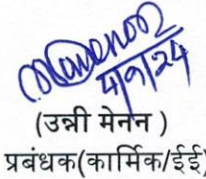 4/9/24
(उन्नी मेनन )
प्रबंधक(कार्मिक/ईई)